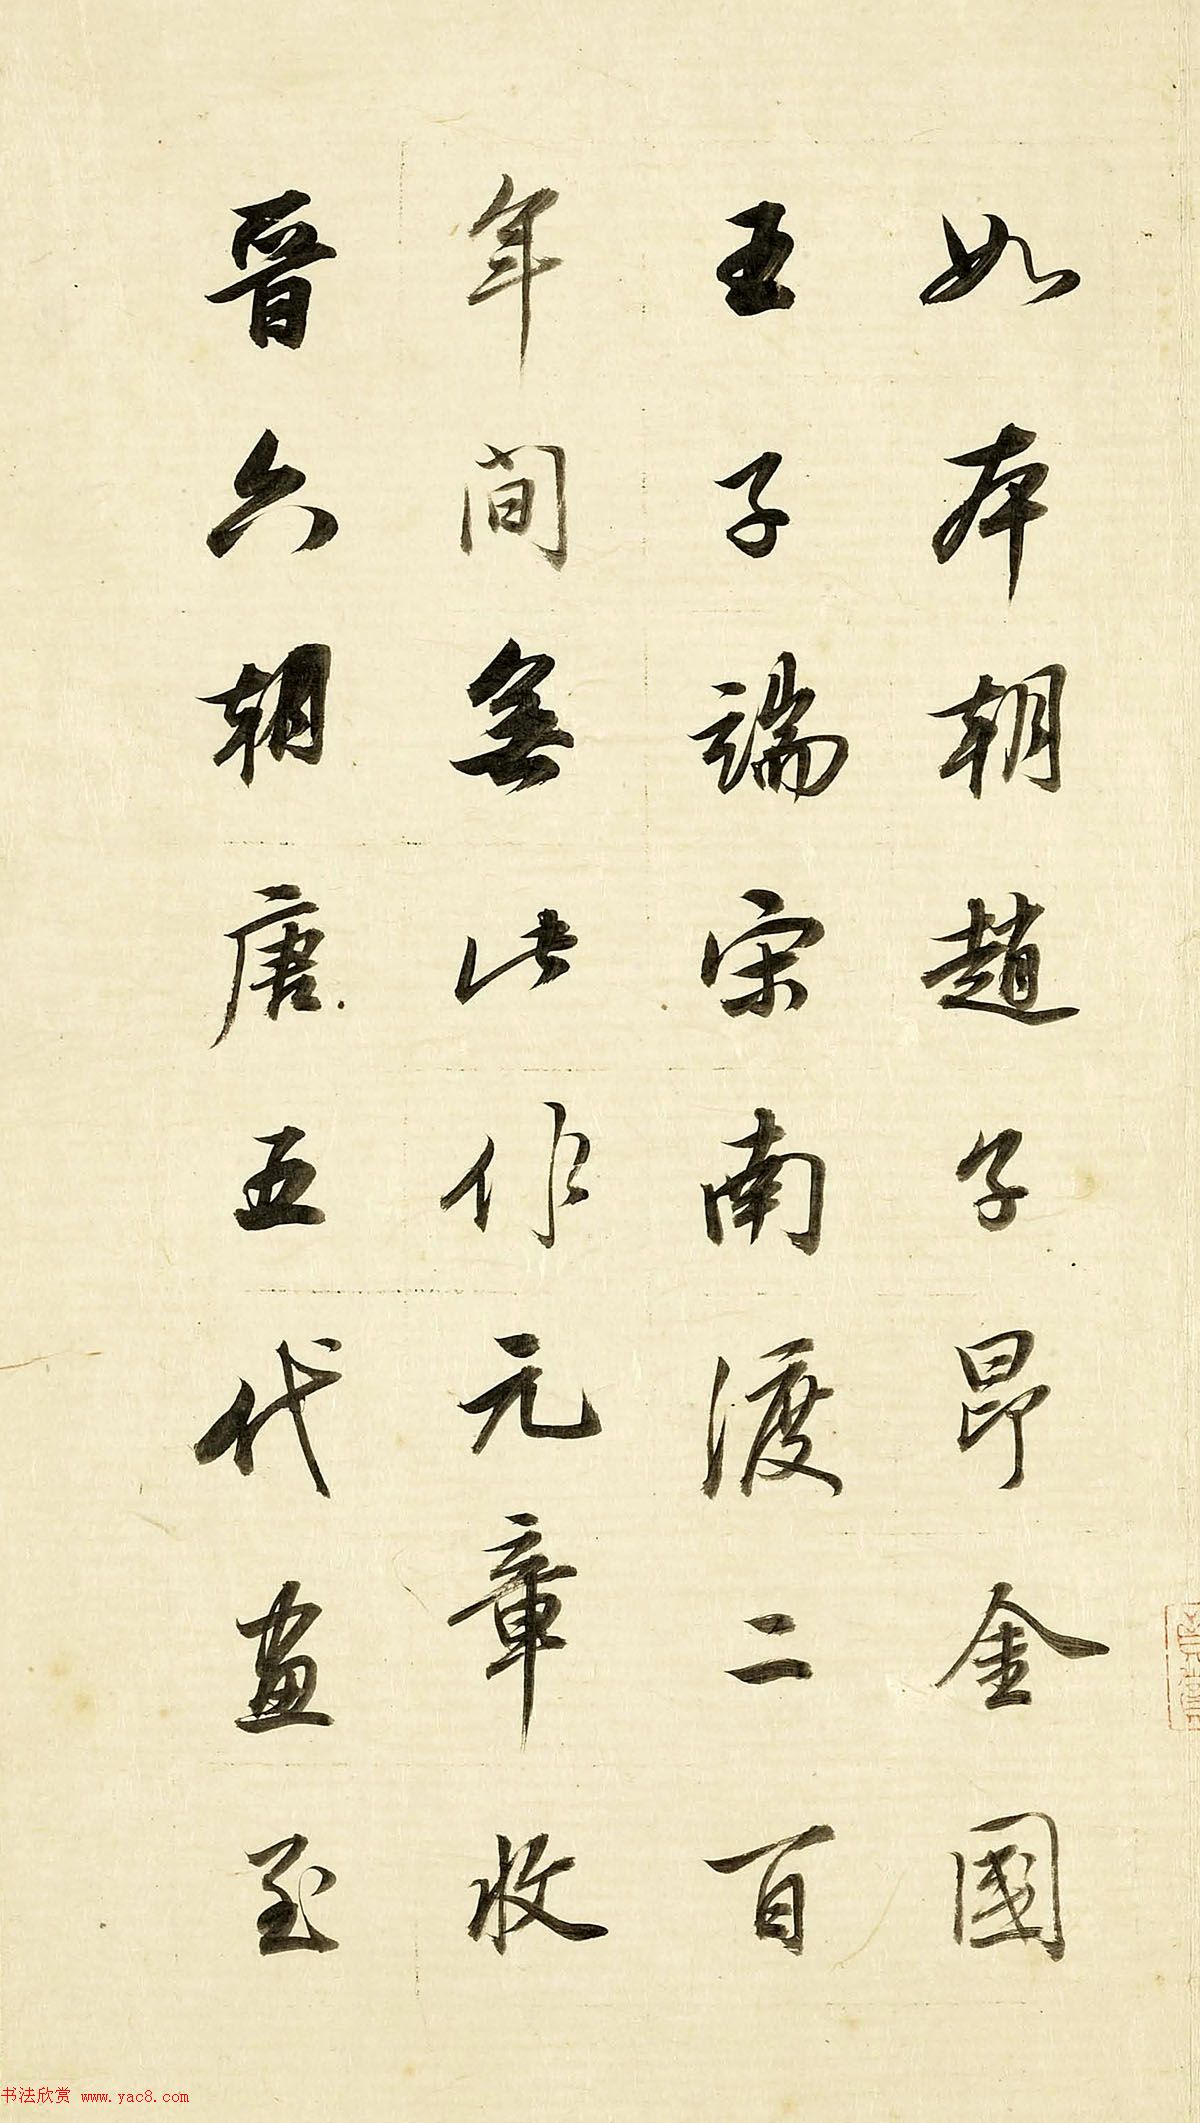 如本朝趙子昂金國
王子端宋南渡二百
年間無此作元章收
晉六朝唐五代畫至
书法欣赏 www.yac8.com